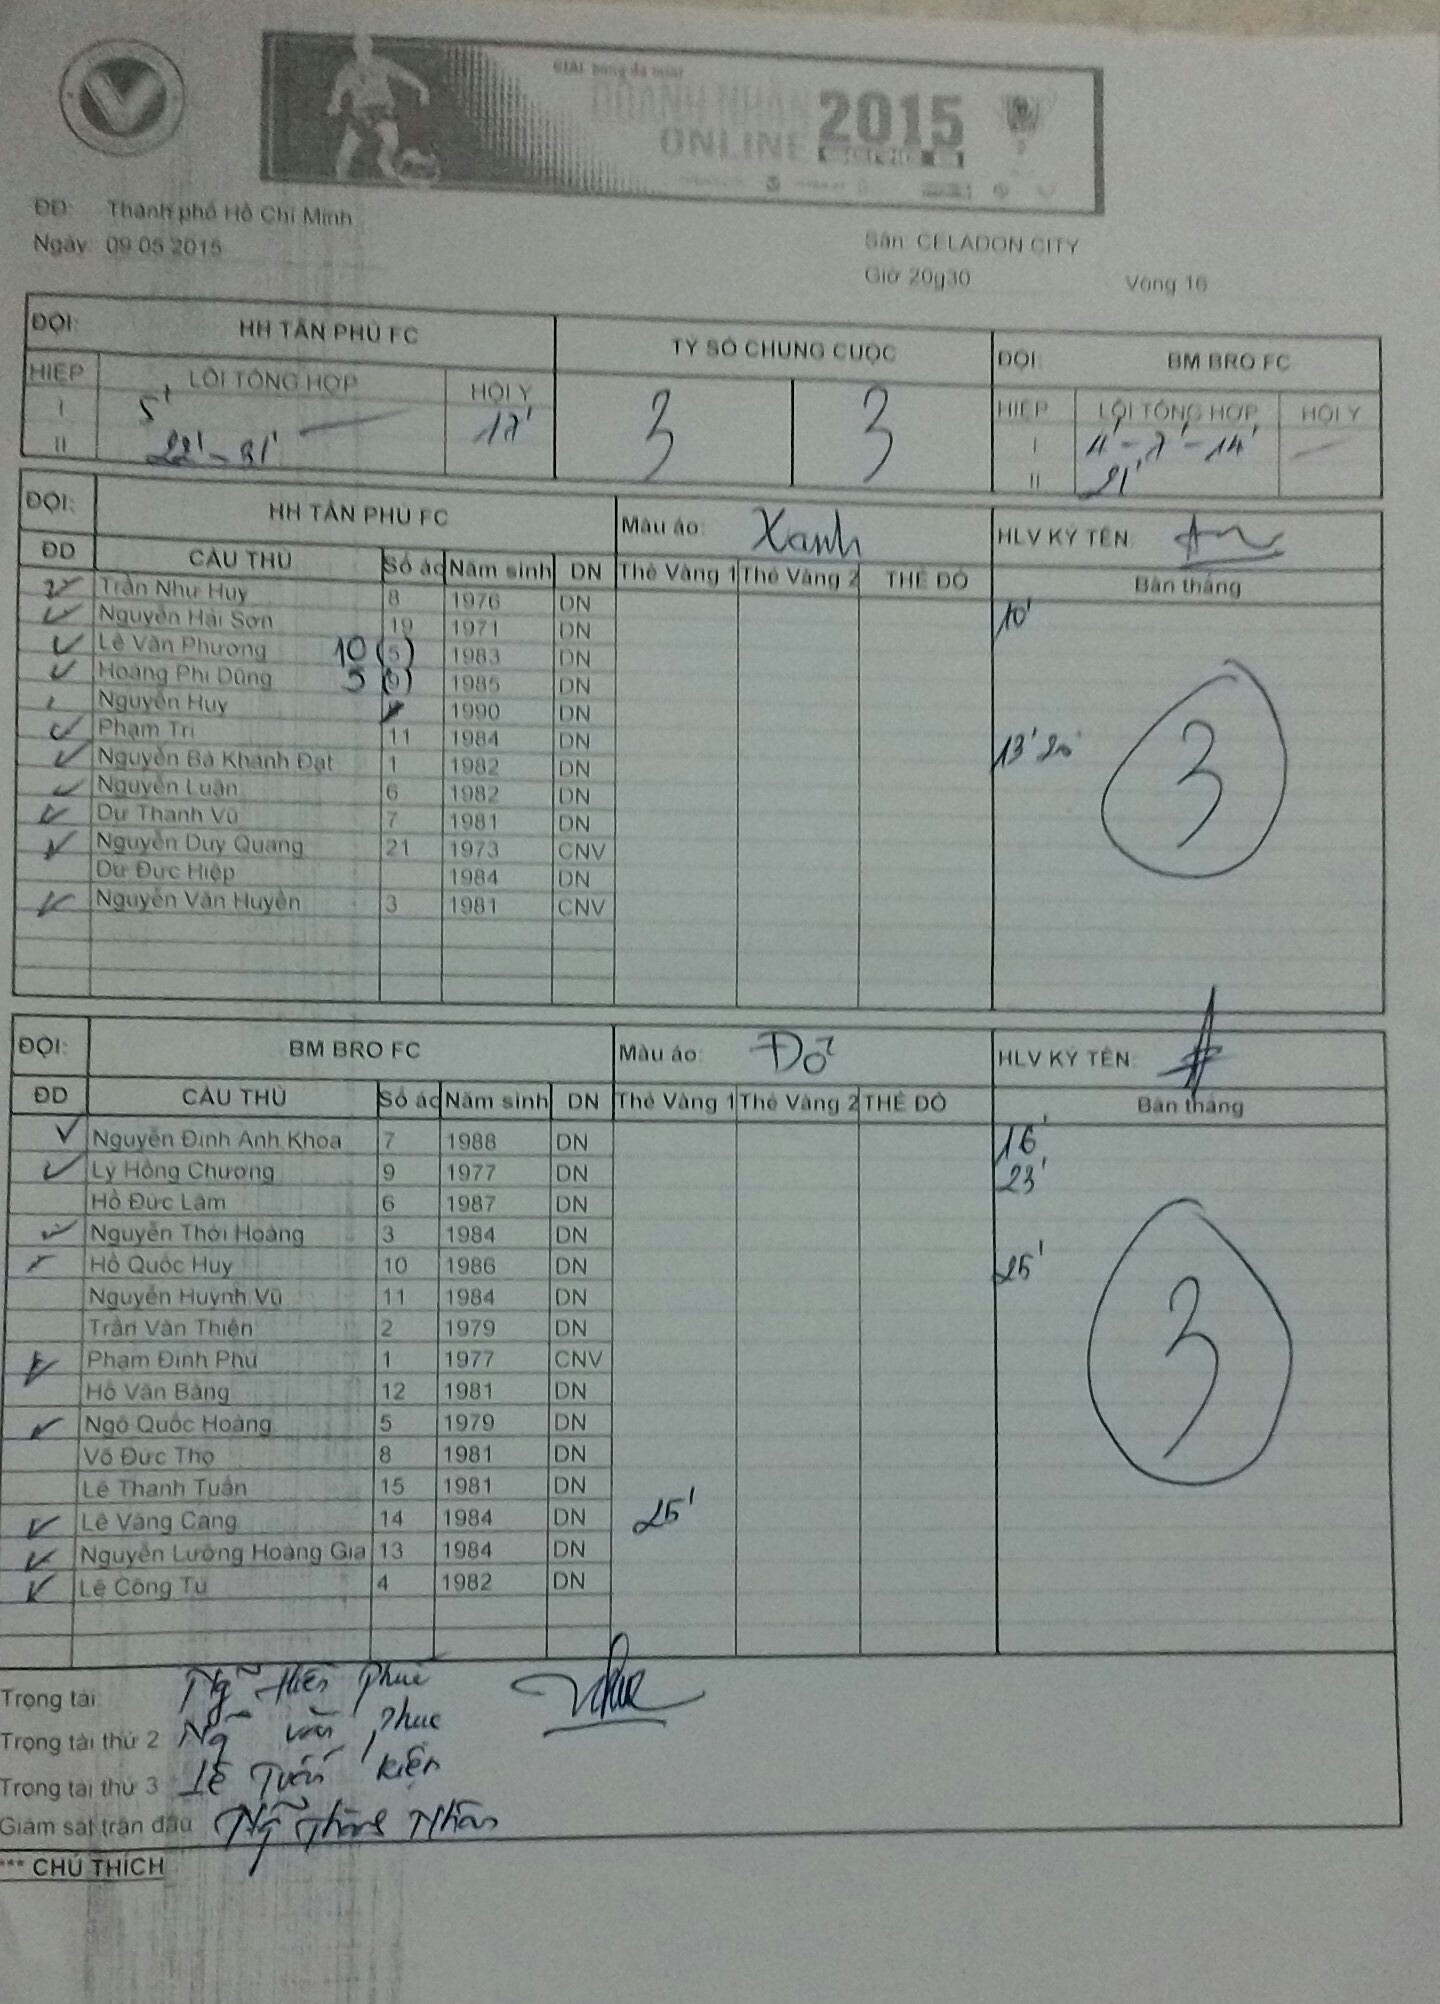 GIẢI bóng đá mini
DOANH NHÂN
ONLINE 2015
ĐĐ: Thành phố Hồ Chí Minh
Ngày: 09.05.2015
Sân: CELADON CITY
Giờ 20g30 Vòng 16
ĐỘI: HH TÂN PHÚ FC TỶ SỐ CHUNG CUỘC ĐỘI: BM BRO FC
HIỆP LỖI TỔNG HỢP HỘI Ý 3 3 HIỆP LỖI TỔNG HỢP HỘI Ý
I 5' 17' I 4' - 7' - 14'
II 22' - 31' II 21'
ĐỘI: HH TÂN PHÚ FC Màu áo: Xanh HLV KÝ TÊN:
ĐD CẦU THỦ Số áo Năm sinh DN Thẻ Vàng 1 Thẻ Vàng 2 THẺ ĐỎ Bàn thắng
Trần Như Huy 8 1976 DN 10'
Nguyễn Hải Sơn 19 1971 DN
Lê Văn Phương 10 (5) 1983 DN
Hoàng Phi Dũng 5 1985 DN
Nguyễn Huy 1990 DN
Phạm Trí 11 1984 DN 13' 20'
Nguyễn Bá Khánh Đạt 1 1982 DN
Nguyễn Luân 6 1982 DN
Dư Thanh Vũ 7 1981 DN
Nguyễn Duy Quang 21 1973 CNV
Dư Đức Hiệp 1984 DN
Nguyễn Văn Huyền 3 1981 CNV
3
ĐỘI: BM BRO FC Màu áo: Đỏ HLV KÝ TÊN:
ĐD CẦU THỦ Số áo Năm sinh DN Thẻ Vàng 1 Thẻ Vàng 2 THẺ ĐỎ Bàn thắng
Nguyễn Đình Anh Khoa 7 1988 DN 16'
Lý Hồng Chương 9 1977 DN 23'
Hồ Đức Lâm 6 1987 DN
Nguyễn Thới Hoàng 3 1984 DN
Hồ Quốc Huy 10 1986 DN 25'
Nguyễn Huỳnh Vũ 11 1984 DN
Trần Văn Thiện 2 1979 DN
Phạm Đình Phú 1 1977 CNV
Hồ Văn Bằng 12 1981 DN
Ngô Quốc Hoàng 5 1979 DN
Võ Đức Thọ 8 1981 DN
Lê Thanh Tuấn 15 1981 DN
Lê Vàng Cang 14 1984 DN 25'
Nguyễn Lường Hoàng Gia 13 1984 DN
Lê Công Tụ 4 1982 DN
3
Trọng tài: Ng Hiền Phúc
Trọng tài thứ 2 Ng Văn Phúc
Trọng tài thứ 3 Lê Tuấn Kiện
Giám sát trận đấu Ng Nhân
*** CHÚ THÍCH